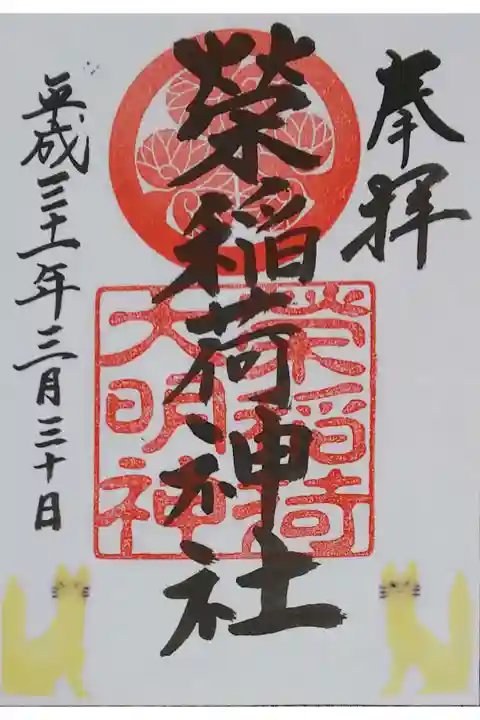 奉拝
榮稲荷神社
榮稲荷
大明神
平成三十一年三月三十日